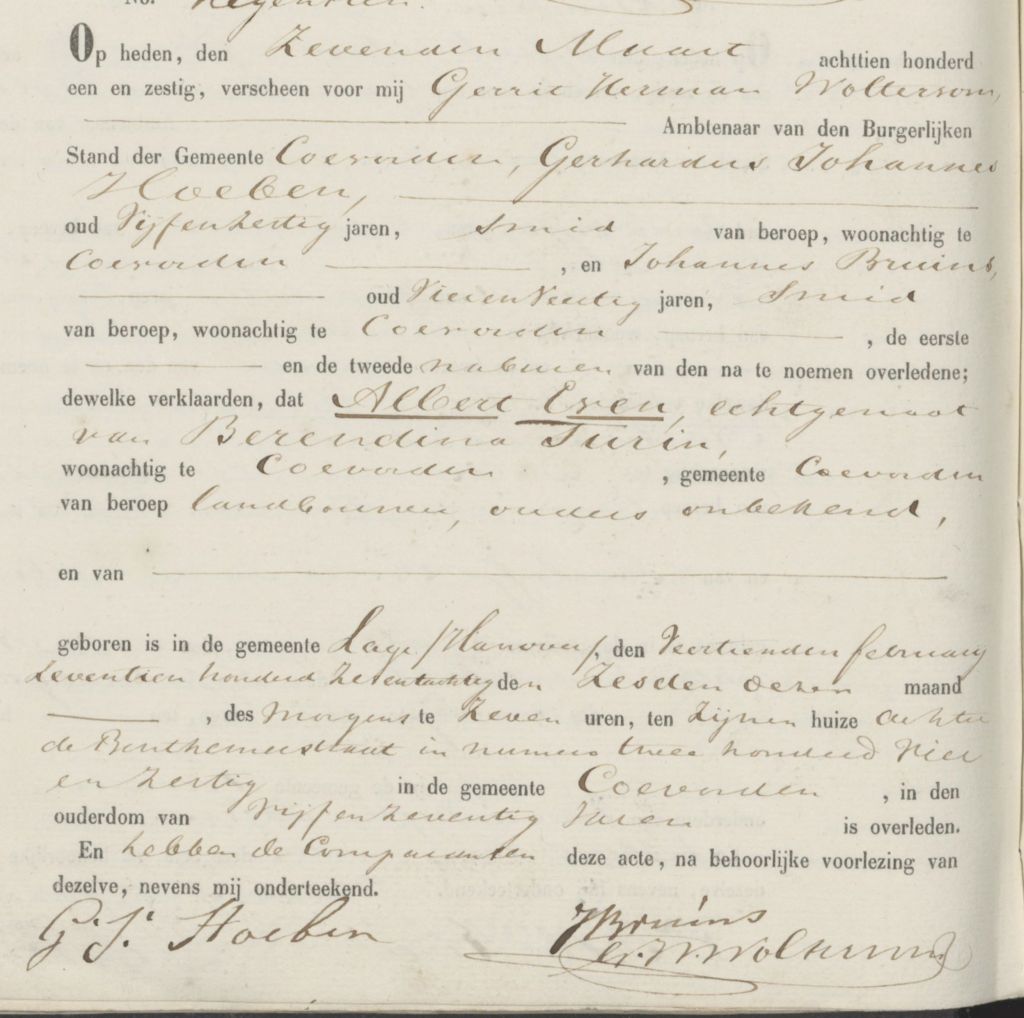 No. Negentien.
Op heden, den Zevenden Maart achttien honderd
een en zestig, verscheen voor mij Gerrit Herman Woltersom,
Ambtenaar van den Burgerlijken
Stand der Gemeente Coevorden, Gerhardus Johannes
Hoeben,
oud Vijfenzestig jaren, Smid van beroep, woonachtig te
Coevorden , en Johannes Bruins,
oud jaren, Smid
van beroep, woonachtig te Coevorden , de eerste
en de tweede naburen van den na te noemen overledene;
dewelke verklaarden, dat Albert Even, echtgenoot
van Berendina Turin,
woonachtig te Coevorden , gemeente Coevorden
van beroep landbouwer, ouders onbekend,
en van
geboren is in de gemeente Lage /Hanover/, den Veertienden february
Zeventien honderd zevenentachtig den Zesden dezer maand
, des morgens te Zeven uren, ten Zijnen huize achter
de Benthemerstraat in numero twee honderd Vier
en zestig in de gemeente Coevorden , in den
ouderdom van Vijfenzeventig Jaren is overleden.
En hebben de Comparanten deze acte, na behoorlijke voorlezing van
dezelve, nevens mij onderteekend.
G. J. Hoeben JBruins
G. H. Woltersom